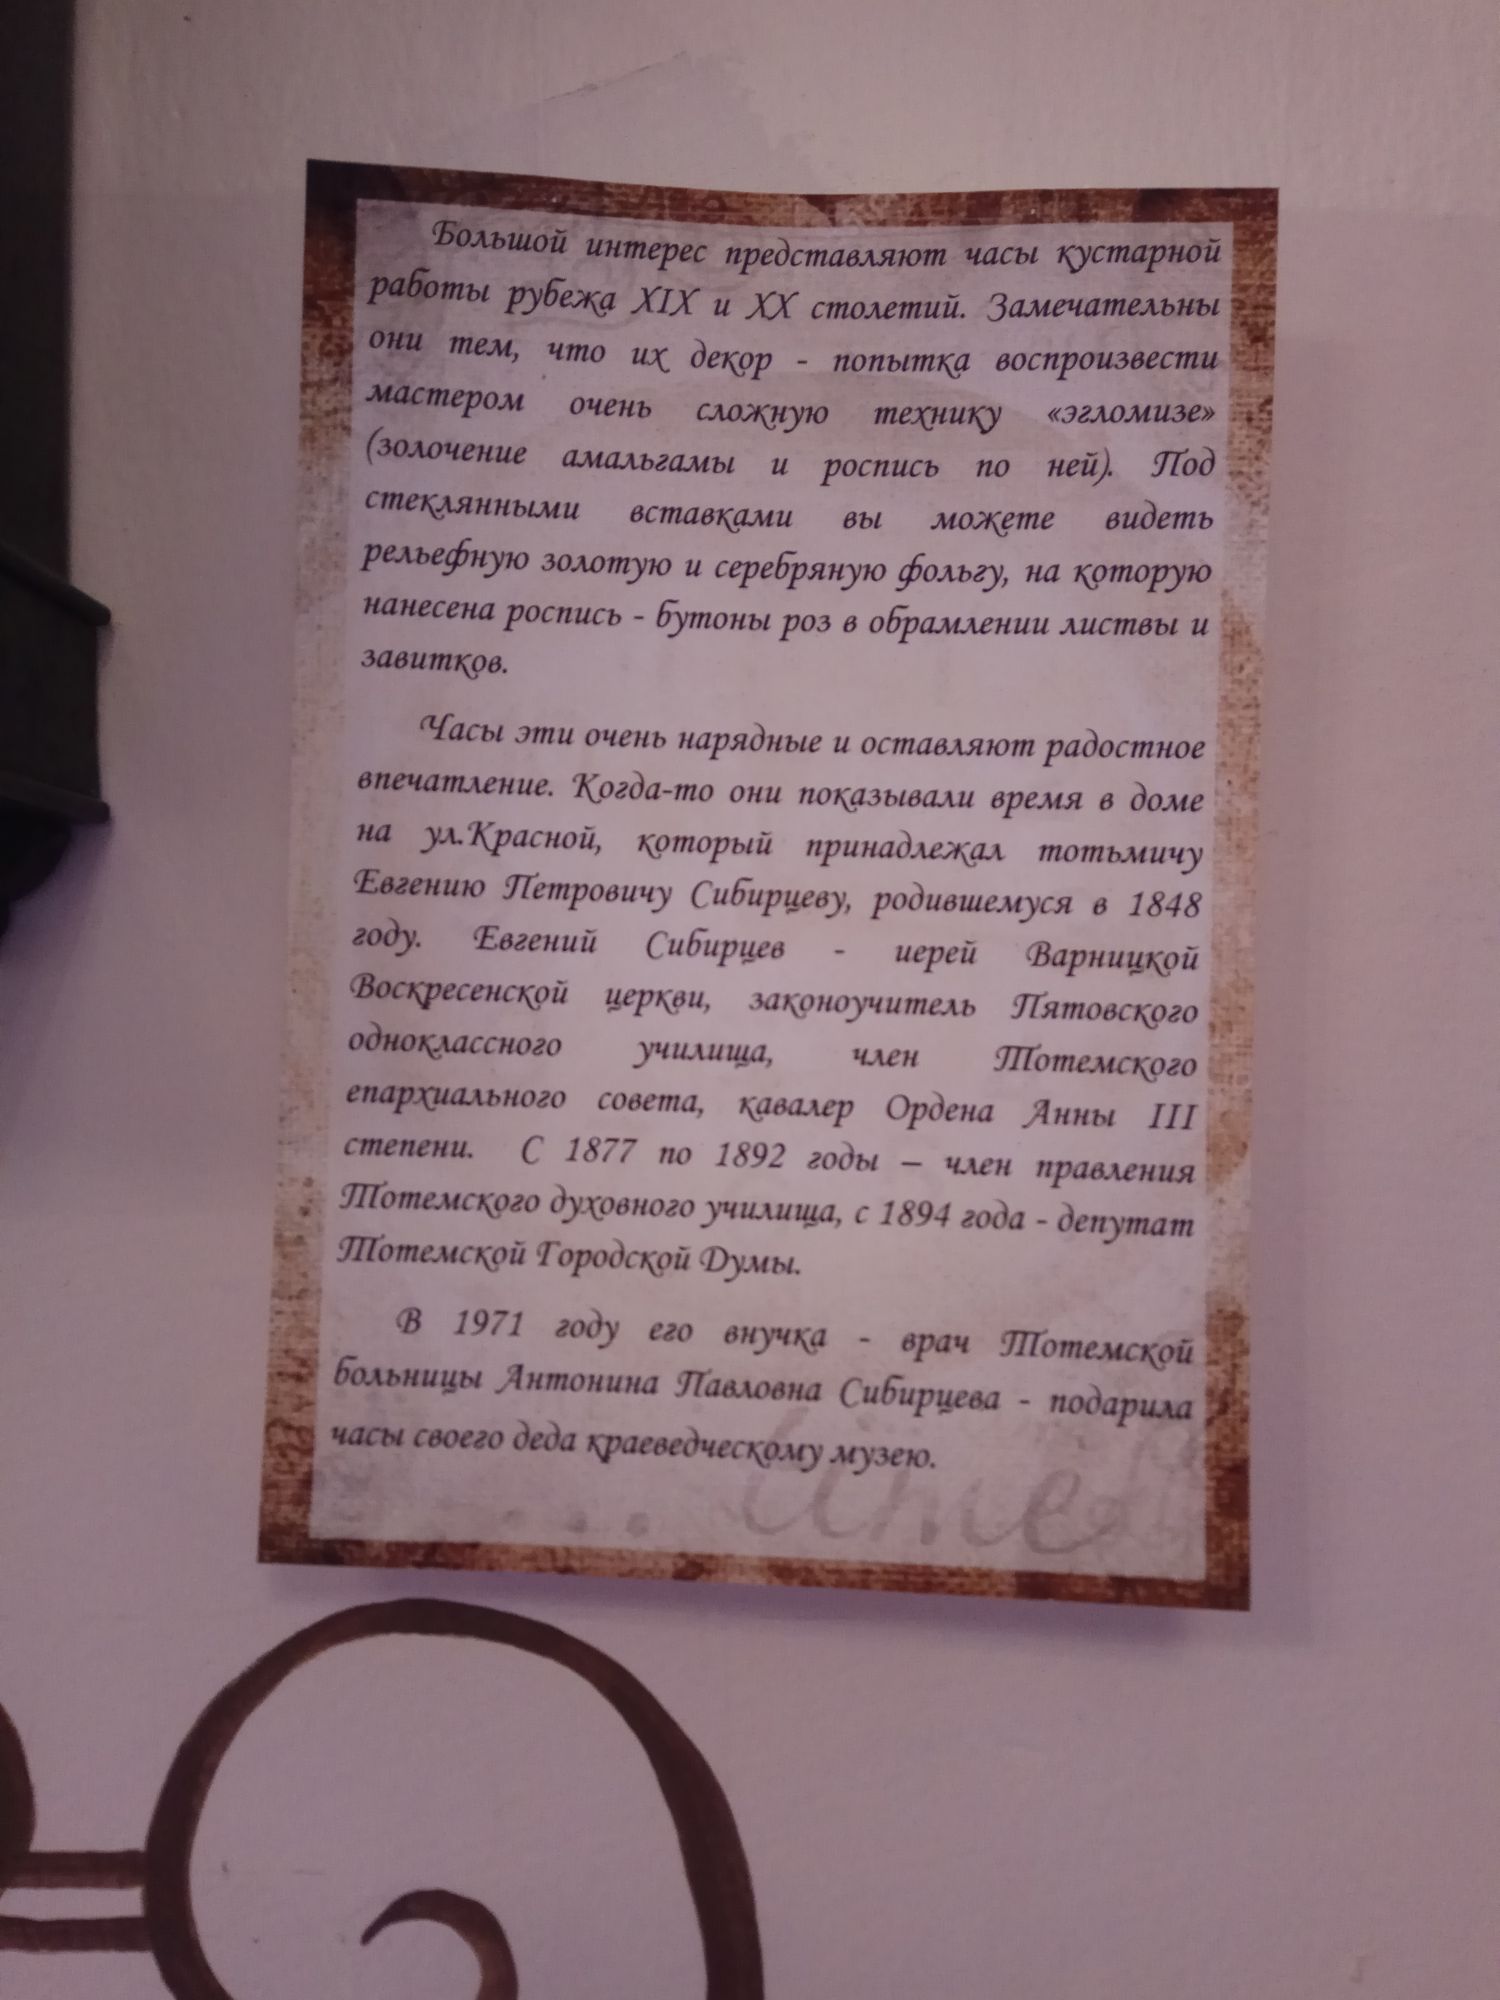 Большой интерес представляют часы кустарной
работы рубежа XIX и XX столетий. Замечательны
они тем, что их декор - попытка воспроизвести
мастером очень сложную технику «эгломизе»
(золочение амальгамы и роспись по ней). Под
стеклянными вставками вы можете видеть
рельефную золотую и серебряную фольгу, на которую
нанесена роспись - бутоны роз в обрамлении листвы и
завитков.
Часы эти очень нарядные и оставляют радостное
впечатление. Когда-то они показывали время в доме
на ул.Красной, который принадлежал тотьмичу
Евгению Петровичу Сибирцеву, родившемуся в 1848
году. Евгений Сибирцев - иерей Варницкой
Воскресенской церкви, законоучитель Пятовского
одноклассного училища, член Тотемского
епархиального совета, кавалер Ордена Анны III
степени. С 1877 по 1892 годы – член правления
Тотемского духовного училища, с 1894 года - депутат
Тотемской Городской Думы.
В 1971 году его внучка - врач Тотемской
больницы Антонина Павловна Сибирцева - подарила
часы своего деда краеведческому музею.